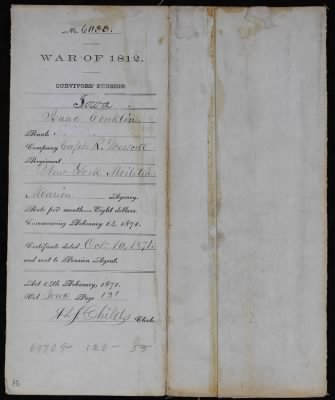 No. 6033.
WAR OF 1812.
SURVIVORS' PENSION.
Iowa
Isaac Conklin
Rank
Company Capt. R.
Regiment
New York Militia
Agency.
Rate per month—Eight dollars.
Commencing February 14, 1871.
Certificate dated Oct. 10, 1871
and sent to Pension Agent.
Act 14th February, 1871.
Vol. Iowa Page 131
Childs Clerk.